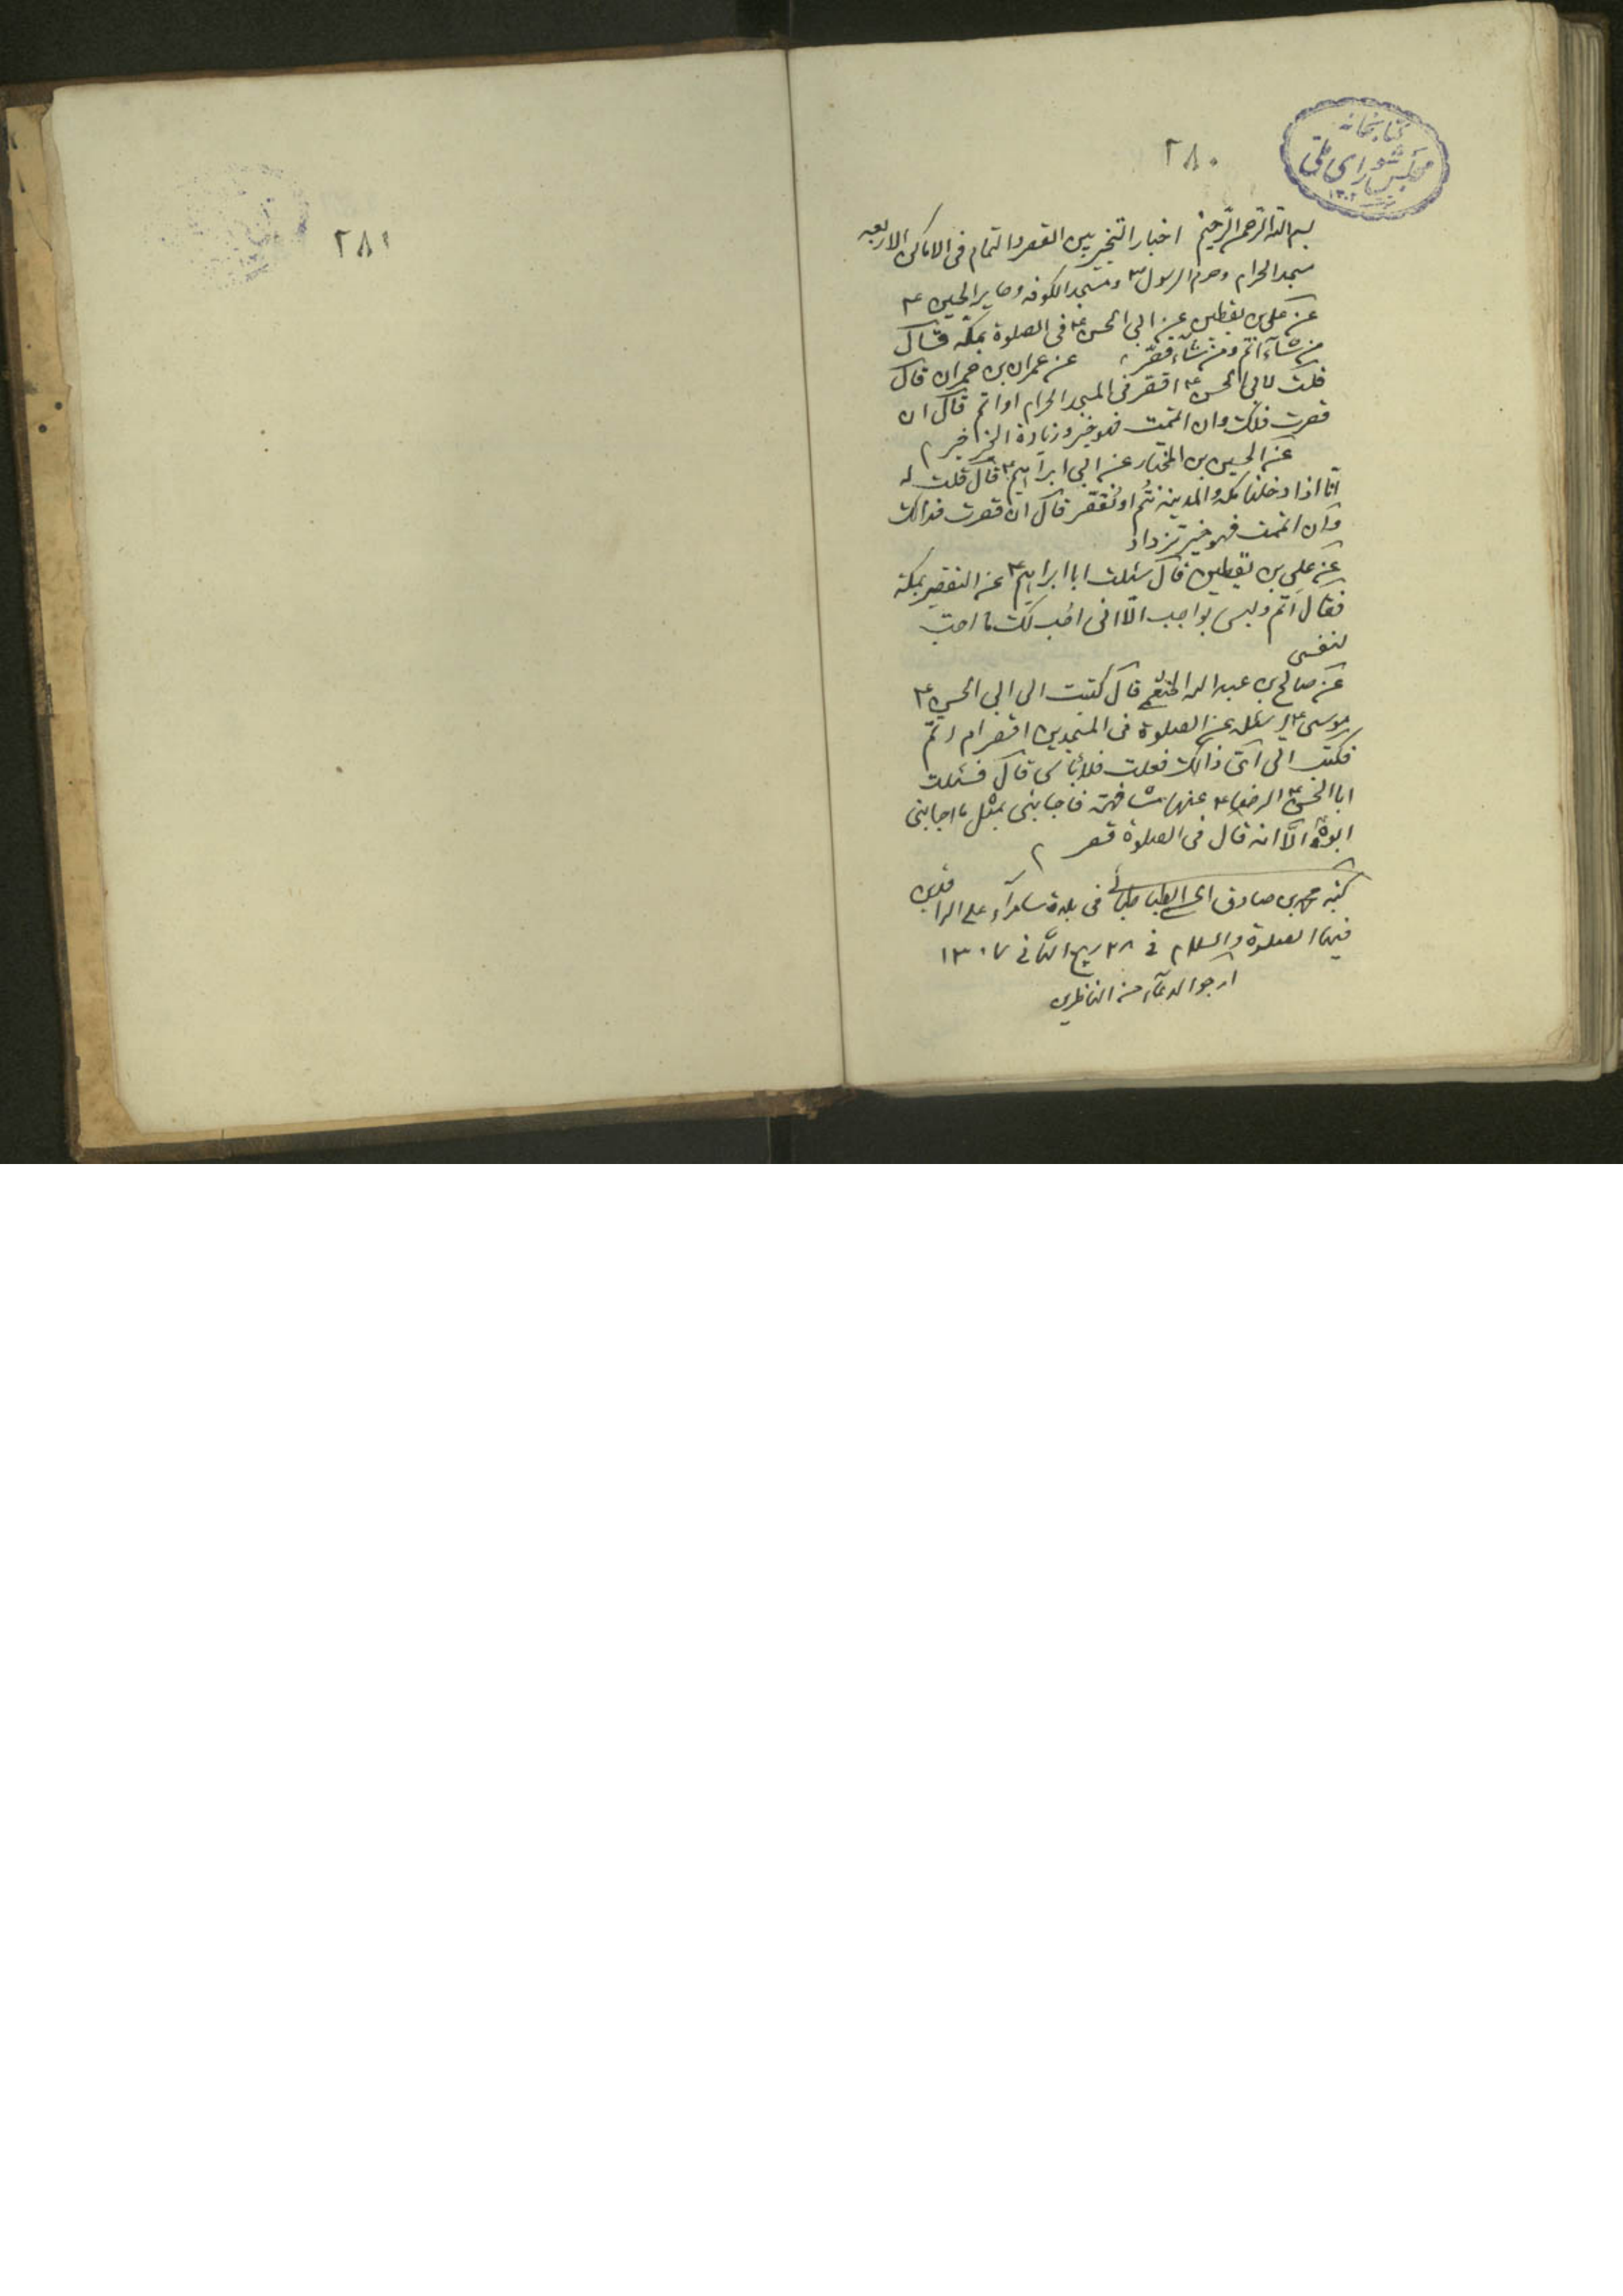 ٢٨٠
كتابخانه
مجلس شورای ملی
١٣٠٢
بسم الله الرحمن الرحيم اخبار التخيير بين القصر والتمام فى الاماكن الاربعه
مسجد الحرام وحرم الرسول ص ومسجد الكوفه وحاير الحسين ع
عن على بن يقطين عن ابى الحسن ع فى الصلوة بمكه قال
من شآء اتم ومن شآء قصّر عن عمران بن حمران قال
قلت لابى الحسن ع اقصر فى المسجد الحرام او اتم قال ان
قصرت فلك وان اتممت فهو خير وزيادة الخير خير
عن الحسين بن المختار عن ابى ابراهيم ع قال قلت له
انّا اذا دخلنا مكه والمدينه نُتم او نُقصّر قال ان قصرت فذالك
وان اتممت فهو خير تزداد
عن على بن يقطين قال سئلت ابا ابراهيم ع عن التقصير بمكه
فقال اتم وليس بواجب الّا انى احب لك ما احب
لنفسى
عن صالح بن عبد الله الخثعمى قال كتبت الى ابى الحسن
موسى ع اسئله عن الصلوة فى المسجدين اقصر ام اتم
فكتب الى اىّ ذالك فعلت فلا باس قال فسئلت
ابا الحسن الرضا ع عنها مشافهة فاجابنى بمثل ما اجابنى
ابوه الّا انه قال فى الصلوة قصر
كتبه محمد بن صادق الطباطبائى فى بلدة سامرآء على الراقدين
فيها الصلوة والسلام فى ٢٨ ربيع الثانى ١٣٠٧
ارجو الدعآء من الناظرين
٢٨١